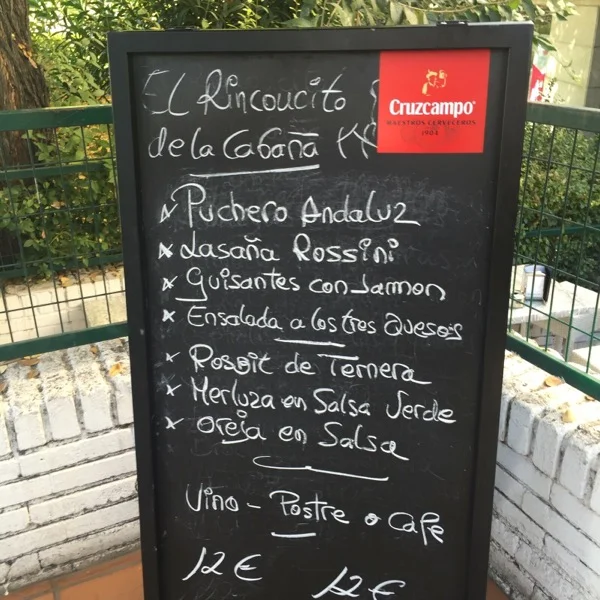 El Rinconcito
de la Cabaña
Cruzcampo
MAESTROS CERVECEROS
1904
x Puchero Andaluz
x Lasaña Rossini
x Guisantes con Jarmon
x Ensalada a los tres Quesos
x Rosbit de Ternera
x Merluza en Salsa Verde
x oreja en Salsa
Vino - Postre o Cafe
12 €
12 €